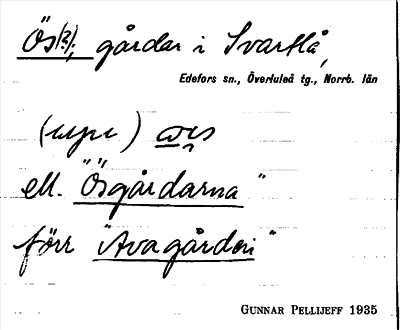 Ös(?), gårdar i Svartlå,
Edefors sn., Överluleå tg., Norrb. län
ell. "Ösgårdarna"
förr "Avagården"
GUNNAR PELLIJEFF 1935